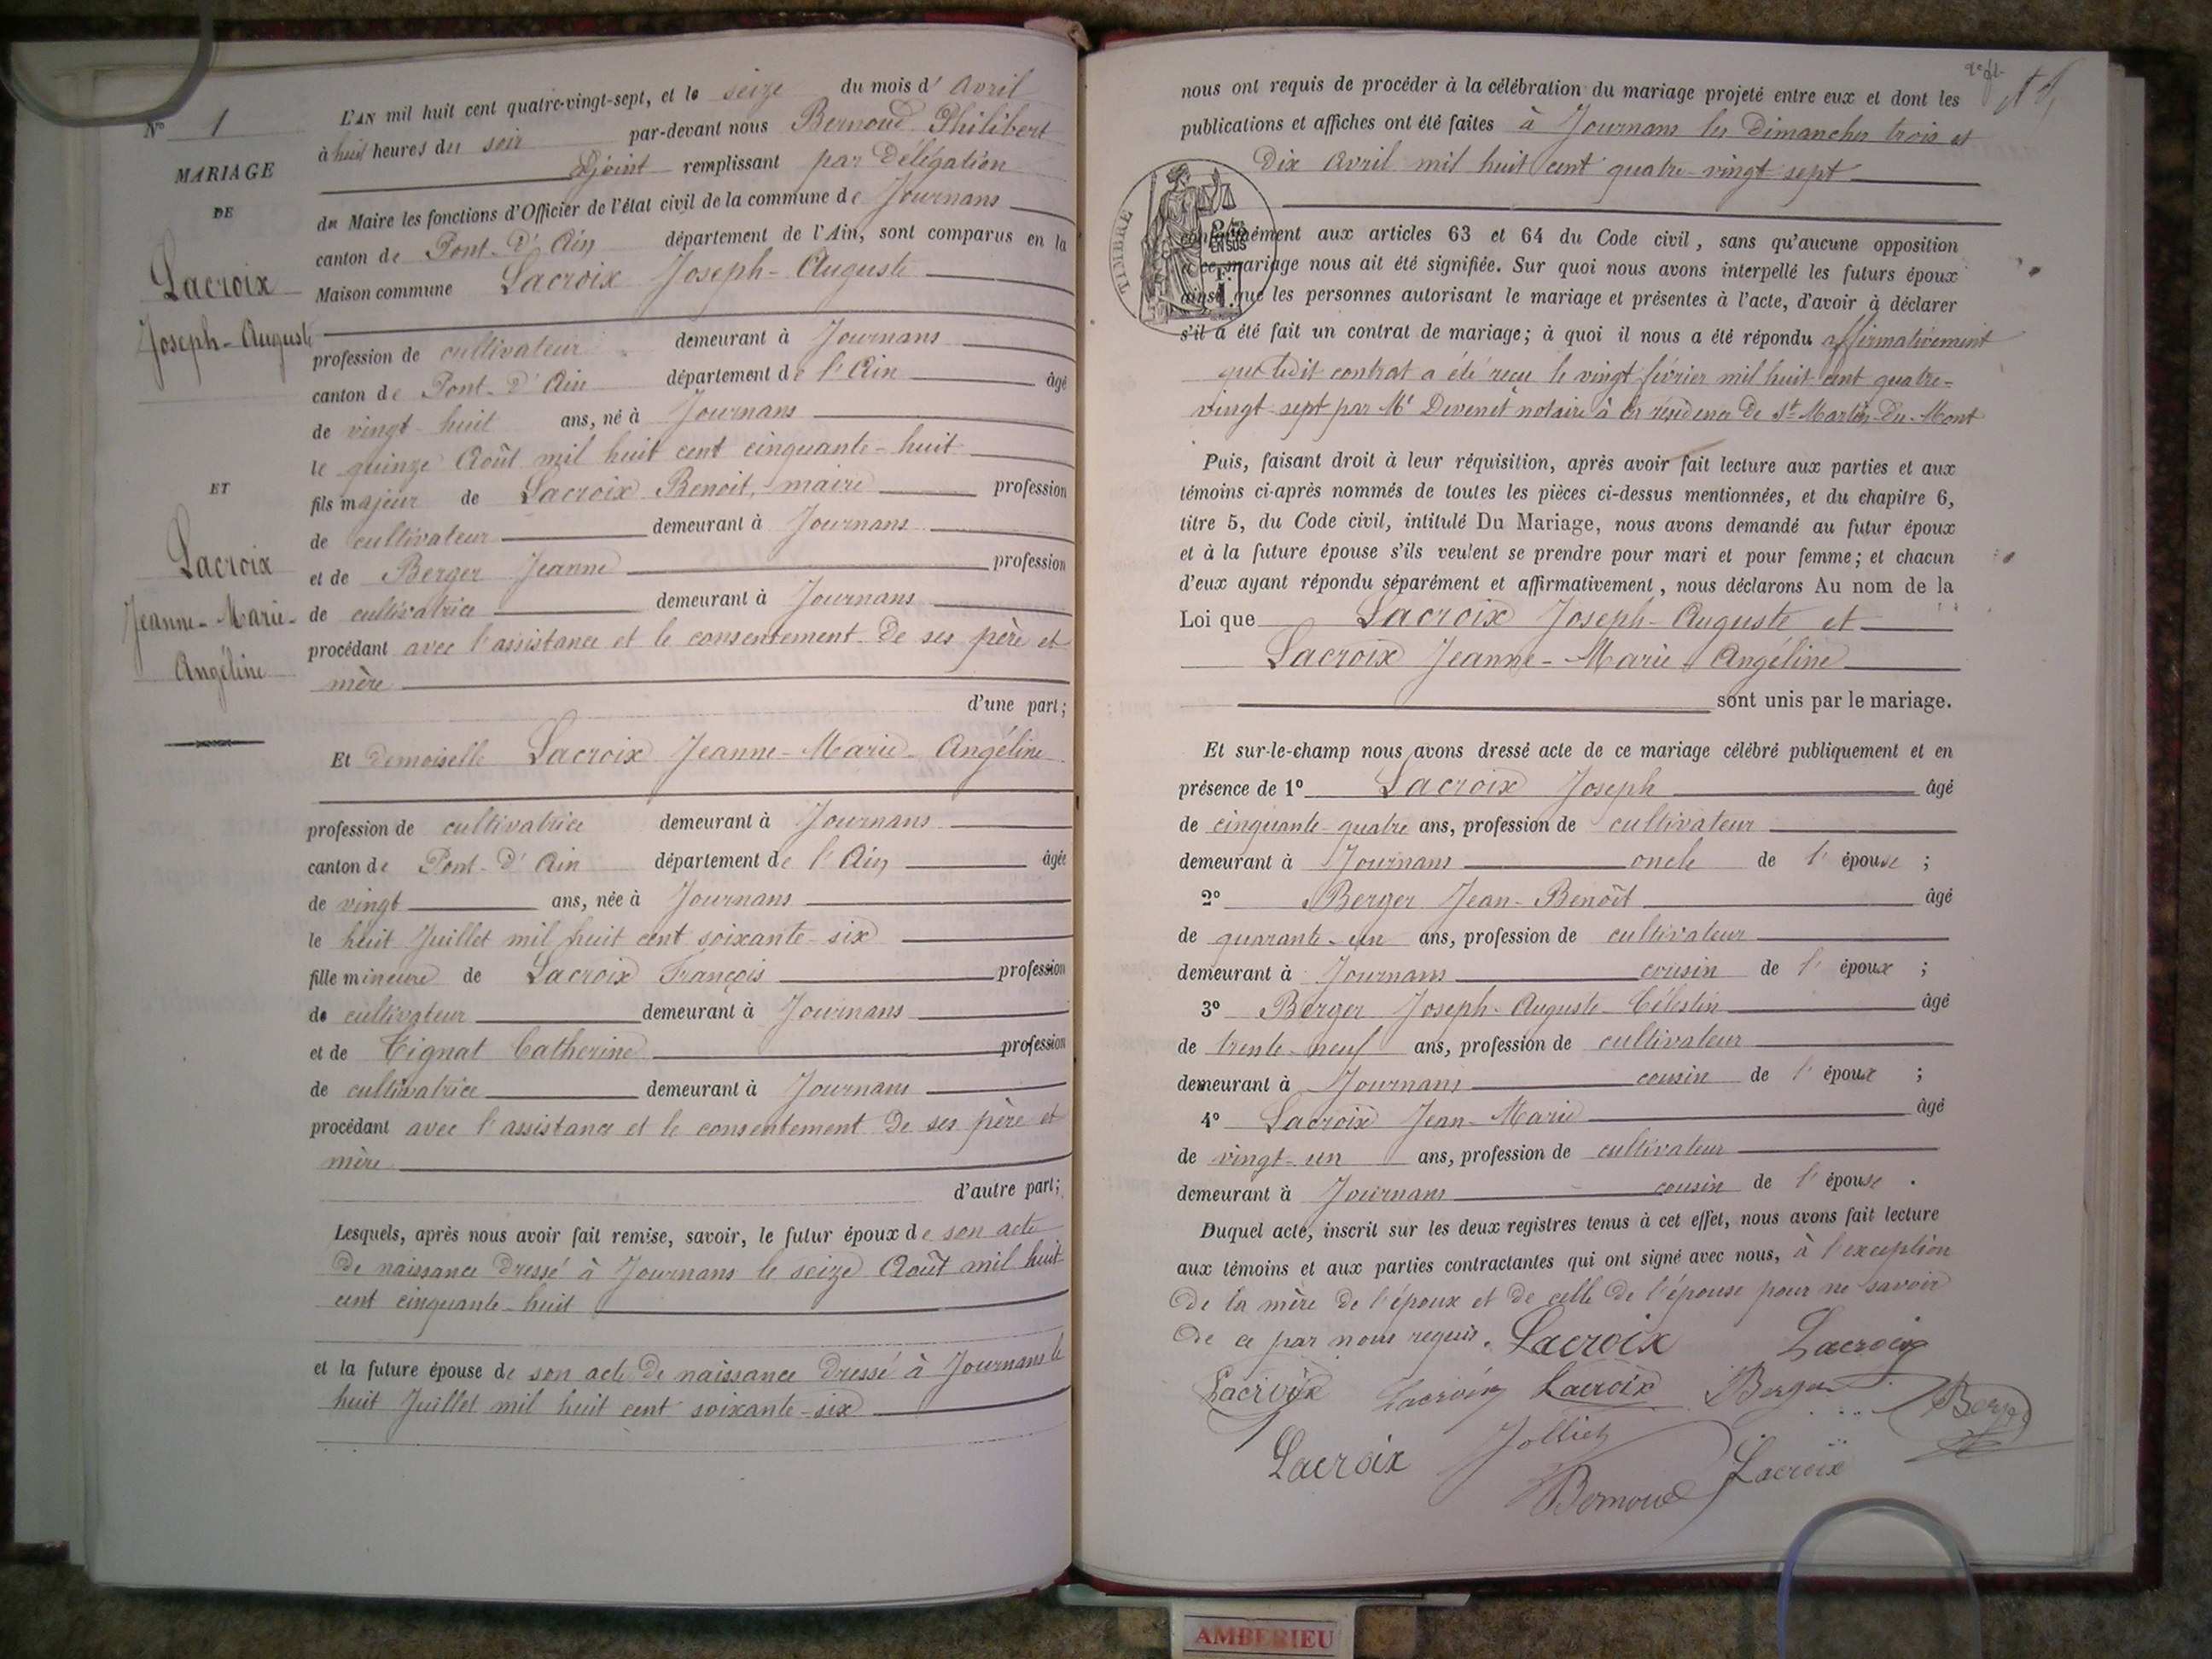 N° 1
MARIAGE
DE
Lacroix
Joseph-Auguste
ET
Lacroix
Jeanne-Marie-
Angéline
L'AN mil huit cent quatre-vingt-sept, et le seize du mois d'Avril
à huit heures du soir par-devant nous Bernoud Philibert
adjoint remplissant par Délégation
du Maire les fonctions d'Officier de l'état civil de la commune de Journans
canton de Pont-d'Ain département de l'Ain, sont comparus en la
Maison commune Lacroix Joseph-Auguste
profession de cultivateur demeurant à Journans
canton de Pont-d'Ain département de l'Ain âgé
de vingt-huit ans, né à Journans
le quinze Août mil huit cent cinquante-huit
fils majeur de Lacroix Benoit, maire profession
de cultivateur demeurant à Journans
et de Berger Jeanne profession
de cultivatrice demeurant à Journans
procédant avec l'assistance et le consentement de ses père et
mère
d'une part;
Et demoiselle Lacroix Jeanne-Marie-Angéline
profession de cultivatrice demeurant à Journans
canton de Pont-d'Ain département de l'Ain âgée
de vingt ans, née à Journans
le huit Juillet mil huit cent soixante-six
fille mineure de Lacroix François profession
de cultivateur demeurant à Journans
et de Tignat Catherine profession
de cultivatrice demeurant à Journans
procédant avec l'assistance et le consentement de ses père et
mère
d'autre part;
Lesquels, après nous avoir fait remise, savoir, le futur époux de son acte
de naissance dressé à Journans le seize Août mil huit
cent cinquante-huit
et la future épouse de son acte de naissance dressé à Journans le
huit Juillet mil huit cent soixante-six
nous ont requis de procéder à la célébration du mariage projeté entre eux et dont les
publications et affiches ont été faites à Journans les Dimanches trois et
dix Avril mil huit cent quatre-vingt-sept
TIMBRE
conformément aux articles 63 et 64 du Code civil, sans qu'aucune opposition
à ce mariage nous ait été signifiée. Sur quoi nous avons interpellé les futurs époux
ainsi que les personnes autorisant le mariage et présentes à l'acte, d'avoir à déclarer
s'il a été fait un contrat de mariage; à quoi il nous a été répondu affirmativement
que ledit contrat a été reçu le vingt février mil huit cent quatre-
vingt-sept par Me Devenet notaire à la résidence de St-Martin-du-Mont
Puis, faisant droit à leur réquisition, après avoir fait lecture aux parties et aux
témoins ci-après nommés de toutes les pièces ci-dessus mentionnées, et du chapitre 6,
titre 5, du Code civil, intitulé Du Mariage, nous avons demandé au futur époux
et à la future épouse s'ils veulent se prendre pour mari et pour femme; et chacun
d'eux ayant répondu séparément et affirmativement, nous déclarons Au nom de la
Loi que Lacroix Joseph-Auguste et
Lacroix Jeanne-Marie-Angéline
sont unis par le mariage.
Et sur-le-champ nous avons dressé acte de ce mariage célébré publiquement et en
présence de 1° Lacroix Joseph âgé
de cinquante-quatre ans, profession de cultivateur
demeurant à Journans oncle de l'épouse ;
2° Berger Jean-Benoît âgé
de quarante-un ans, profession de cultivateur
demeurant à Journans cousin de l'époux ;
3° Berger Joseph-Auguste-Célestin âgé
de trente-neuf ans, profession de cultivateur
demeurant à Journans cousin de l'époux ;
4° Lacroix Jean-Marie âgé
de vingt-un ans, profession de cultivateur
demeurant à Journans cousin de l'épouse .
Duquel acte, inscrit sur les deux registres tenus à cet effet, nous avons fait lecture
aux témoins et aux parties contractantes qui ont signé avec nous, à l'exception
de la mère de l'époux et de celle de l'épouse pour ne savoir
de ce par nous requis. Lacroix Lacroix
Lacroix Lacroix Lacroix Berger Berger
Lacroix Jolliet Lacroix
Bernoud
AMBERIEU